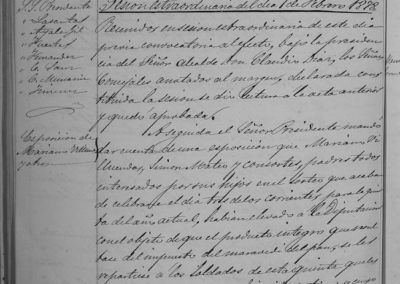 S.S. Presidente
Lasantas
Fuertes
Fernandez
La Sanz
C. Munarriz
Jimenez
Exposicion de
Mariano Villanueva
y otros
Sesion extraordinaria del dia 1 de Febrero 1878
Reunidos en sesion extraordinaria de este dia
previa convocatoria al efecto, bajo la presiden
cia del Señor Alcalde Don Claudio Ibar, los Señores
Concejales anotados al margen, declarada cons
tituida la sesion se dió lectura a la acta anterior
y quedo aprobada.
Seguida el Señor Presidente mandó
dar cuenta de una exposicion que Mariano Vi
Simon Mateo y consortes, padres todos
interesados por sus hijos en el sorteo que acaba
de celebrarse el dia tres de los corrientes para la quin
ta del año actual, habian elevado a la Diputacion
con el objeto de que el producto integro que
base del impuesto del maravedi del pan, se les
repartiese a los soldados de esta quinta que les